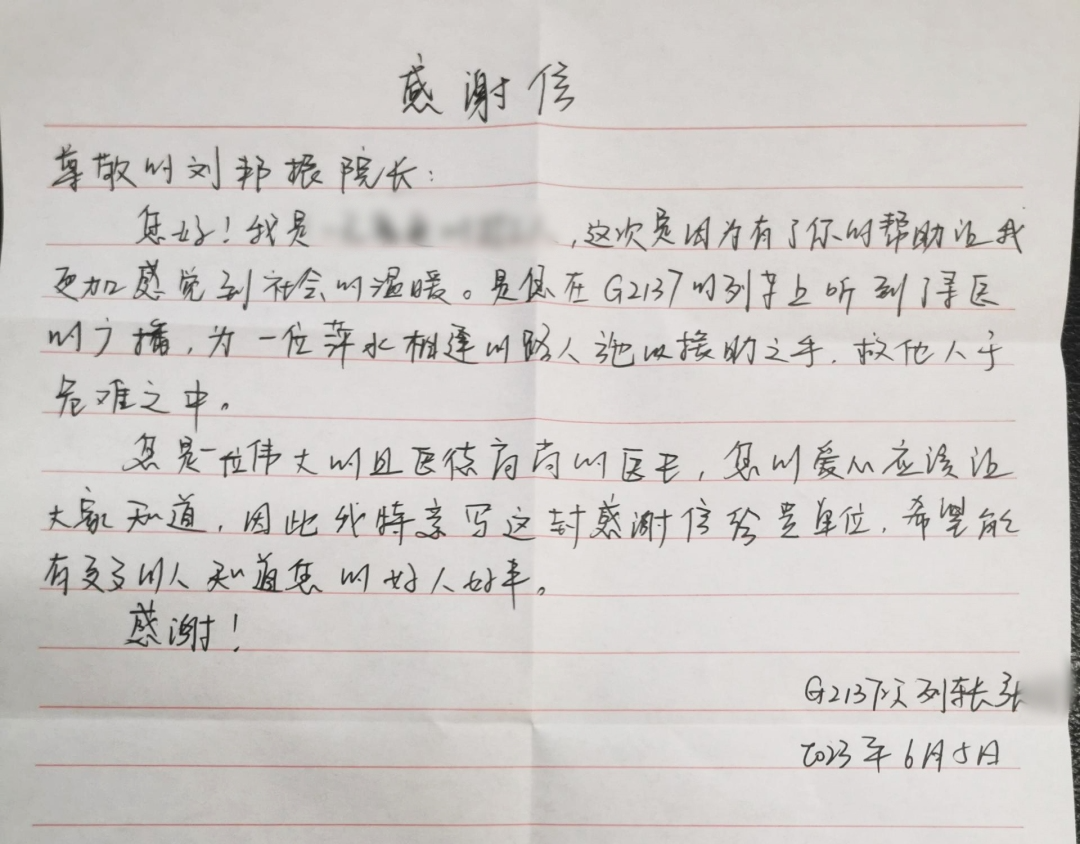 感谢信
尊敬的刘邦振院长：
您好！我是，这次是因为有了你的帮助让我
更加感觉到社会的温暖。是您在G2137的列车上听到了寻医
的广播，为一位萍水相逢的路人施以援助之手，救他人于
危难之中。
您是一位伟大的且医德高尚的医生，您的爱心应该让
大家知道，因此我特意写这封感谢信给贵单位，希望能
有更多的人知道您的好人好事。
感谢！
G2137次列车长张
2023年6月5日